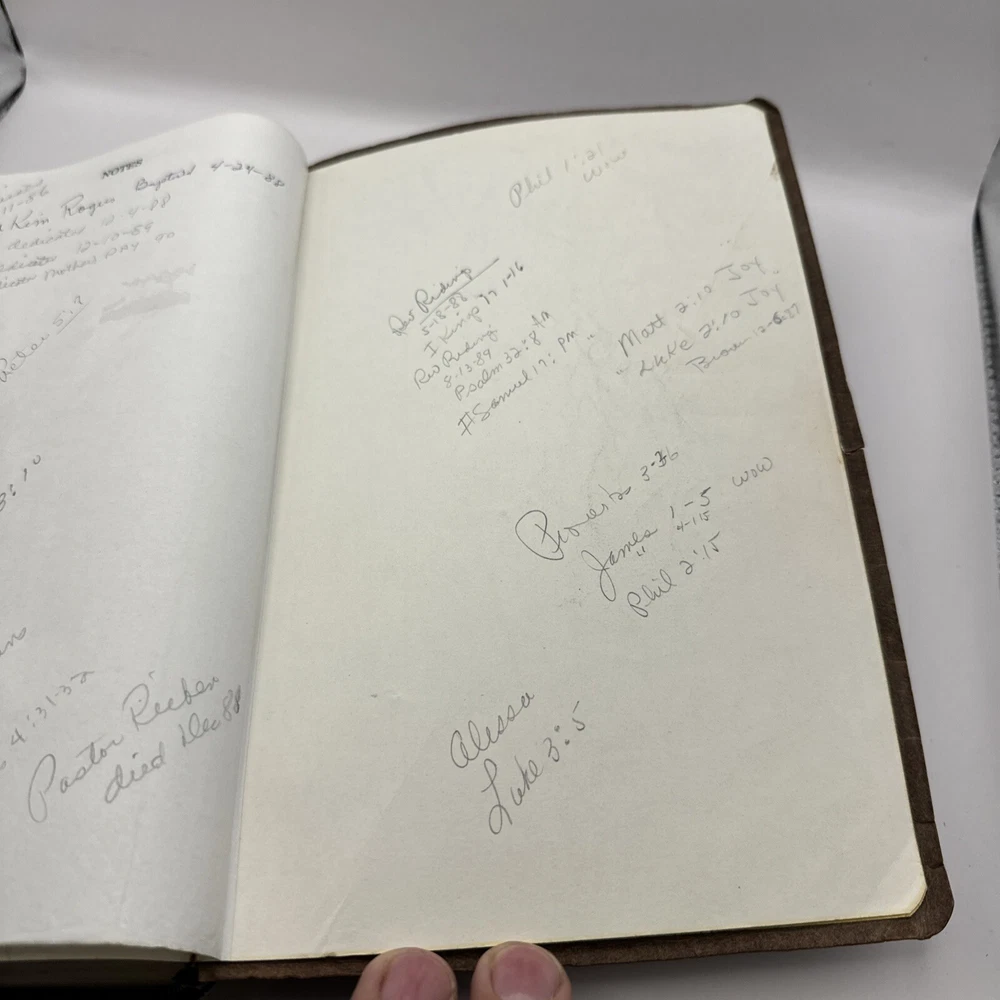 NOTES
11-86
Kim Rogers Baptised 4-24-88
dedicated 12-4-88
12-10-89
Mothers DAY 90
5:9
3:10
4:31-32
Pastor Rieben
died Dec 88
Phil 1:21
wow
Rev Riding
5-18-88
I Kings 17 1-16
Rev Riding
8-13-89
Psalm 32:8 AM
II Samuel 17: PM "
Matt 2:10 Joy
" Luke 2:10 Joy
Proverbs 3-36
James 1-5 wow
" 4-15
Phil 2:15
Alissa
Luke 3:5